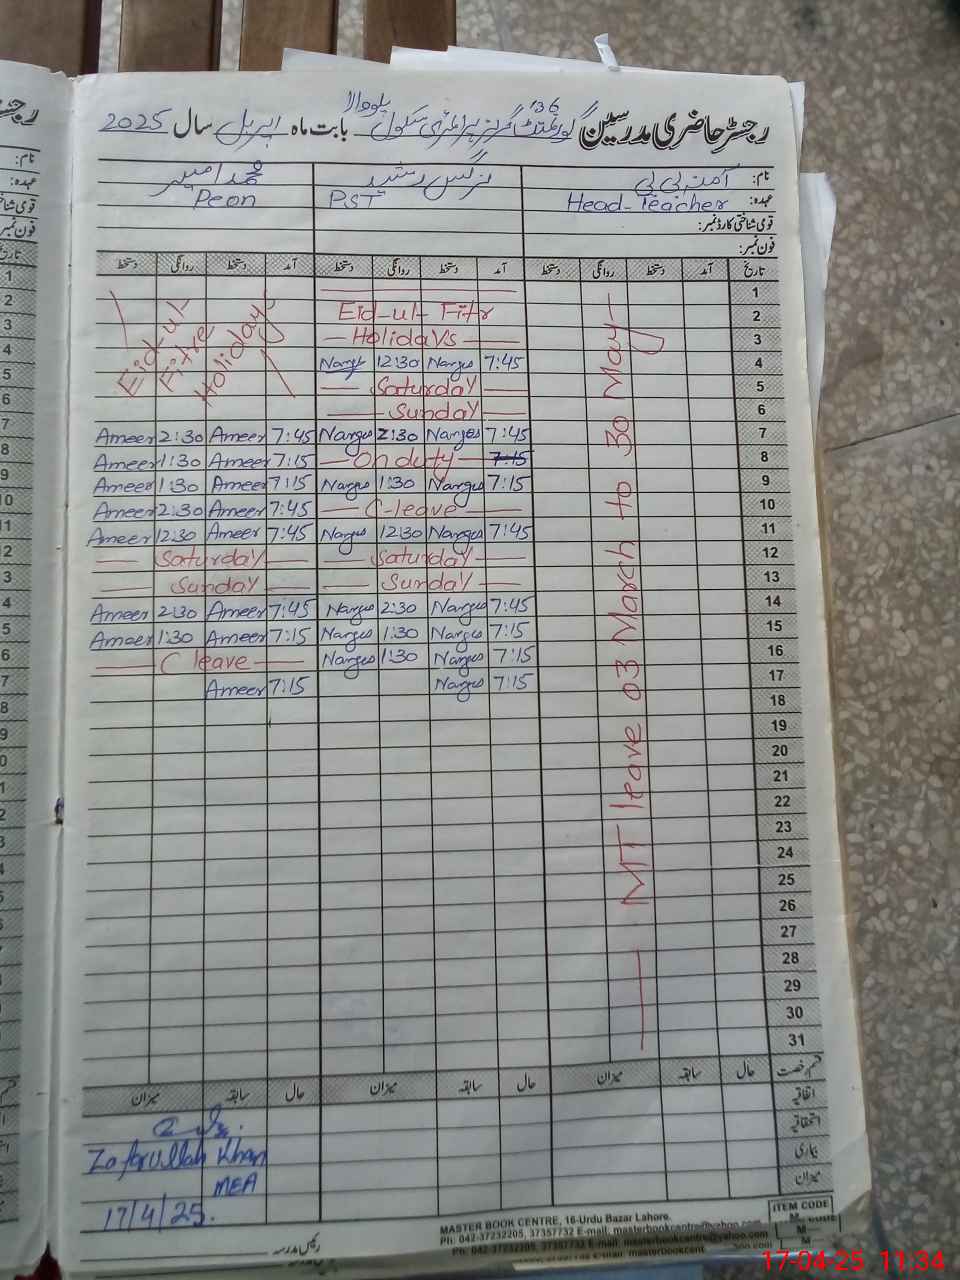 رجسٹر حاضری مدرسین گورنمنٹ گرلز پرائمری سکول بابت ماہ اپریل سال 2025
نام: آمنہ بی بی نرگس رشید محمد امیر
عہدہ: Head-Teacher PST Peon
قومی شناختی کارڈ نمبر:
فون نمبر:
تاریخ آمد دستخط روانگی دستخط آمد دستخط روانگی دستخط آمد دستخط روانگی دستخط
1
Eid-ul-Fitr 2
Holidays 3
Eid-ul-Fitre Holiday
Narges 12:30 Narges 7:45 4
Saturday 5
Sunday 6
Ameer 2:30 Ameer 7:45 Narges 2:30 Narges 7:45 7
Ameer 1:30 Ameer 7:15 On duty 7:15 8
Ameer 1:30 Ameer 7:15 Narges 1:30 Narges 7:15 9
Ameer 2:30 Ameer 7:45 C-leave 10
Ameer 12:30 Ameer 7:45 Narges 12:30 Narges 7:45 11
Saturday Saturday 12
Sunday Sunday 13
Ameer 2:30 Ameer 7:45 Narges 2:30 Narges 7:45 14
Ameer 1:30 Ameer 7:15 Narges 1:30 Narges 7:15 15
C leave Narges 1:30 Narges 7:15 16
Ameer 7:15 Narges 7:15 17
18
19
20
21
22
23
24
25
26
27
28
29
30
31
MT leave 03 March to 30 May
قسم رخصت حال سابقہ میزان حال سابقہ میزان حال سابقہ میزان
اتفاقیہ
استحقاقیہ
بیماری
میزان
Zafarullah Khan
MEA
17/4/25.
رئیس مدرسہ
MASTER BOOK CENTRE, 16-Urdu Bazar Lahore.
Ph: 042-37232205, 37357732 E-mail: masterbookcentre@yahoo.com
ITEM CODE
17-04-25 11:34